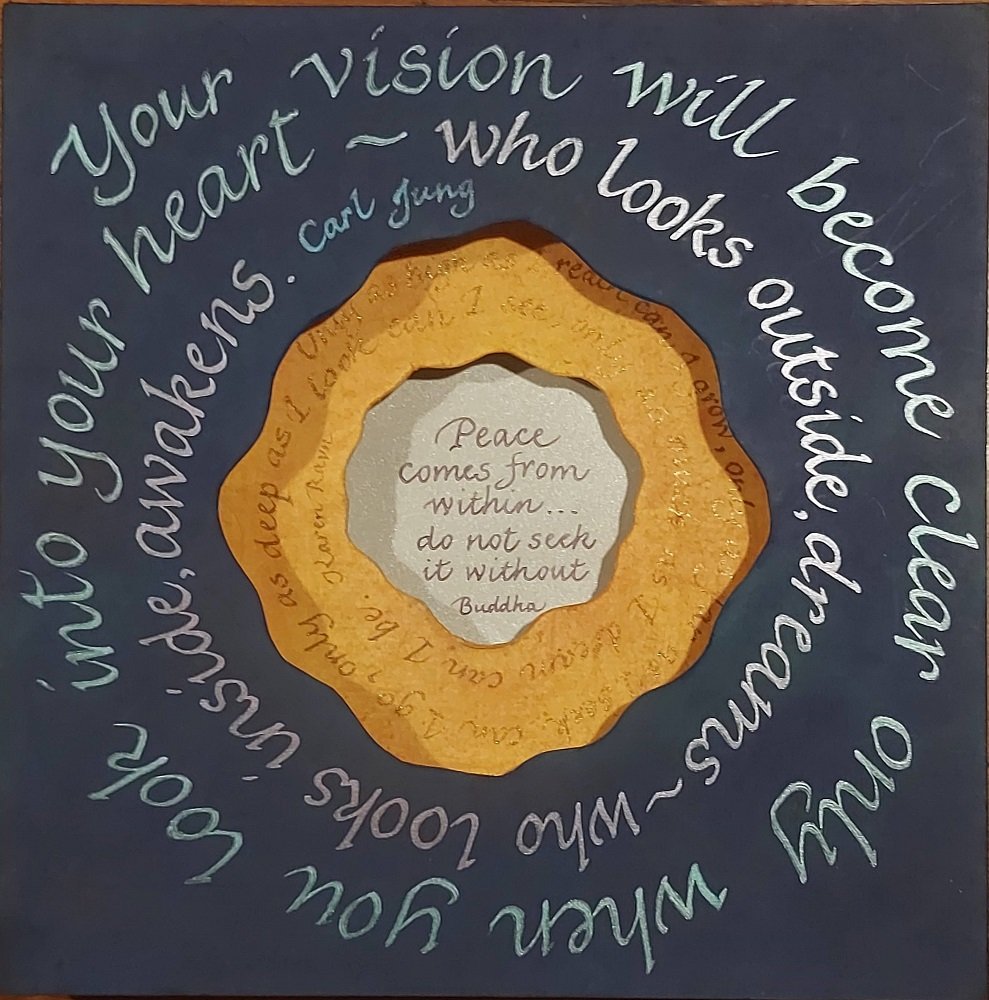 Your vision will become clear only when you look into your
heart ~ who looks outside, dreams ~ who looks inside, awakens.
Carl Jung
Only as high as I reach can I grow, only as far as I seek can I go, only as deep as I
look can I see, only as much as I dream can I be.
Karen Ravn
Peace
comes from
within...
do not seek
it without
Buddha